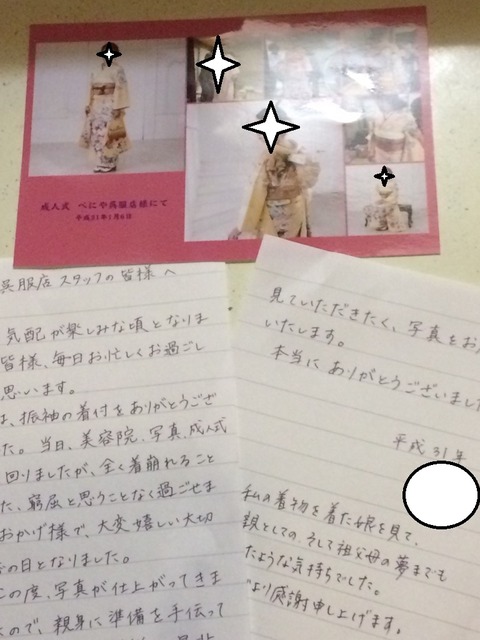 成人式 べにや呉服店様にて
平成31年1月6日
呉服店スタッフの皆様へ
気配が楽しみな頃となりま
皆様、毎日お忙しくお過ごし
思います。
は、振袖の着付をありがとうござ
た。当日、美容院、写真、成人式
回りましたが、全く着崩れること
た、窮屈と思うことなく過ごせま
おかげ様で、大変嬉しい大切
の日となりました。
この度、写真が仕上がってきま
ので、親身に準備を手伝って
見ていただきたく、写真をお
いたします。
本当に ありがとうございました
平成31年
私の着物を着た娘を見て、
親としての、そして祖父母の夢までも
たような気持ちでした。
より感謝申し上げます。